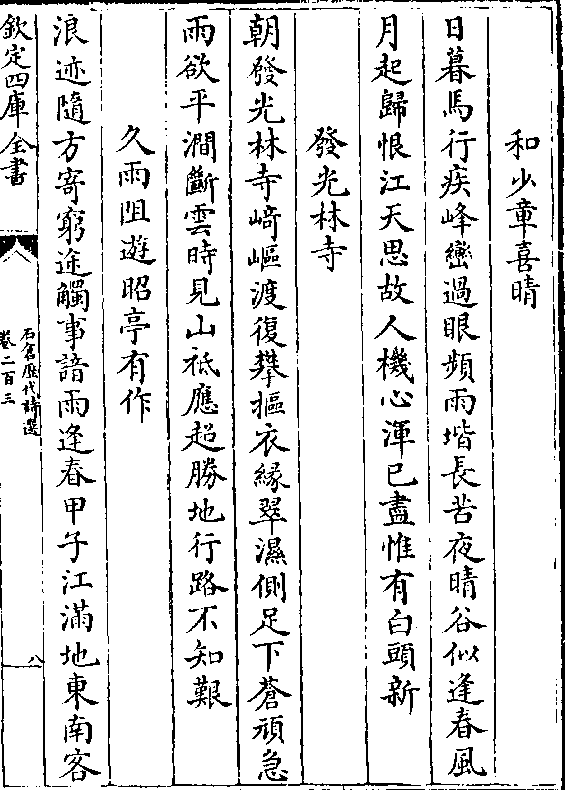 和少章喜晴
日暮馬行疾峰巒過眼頻雨堦長苦夜晴谷似逢春風
月起歸恨江天思故人機心渾已盡惟有白頭新
發光林寺
朝發光林寺﨑嶇渡復攀摳衣緣翠濕側足下蒼頑急
雨欲平澗斷雲時見山祗應超勝地行路不知艱
久雨阻遊昭亭有作
浪迹隨方寄窮途觸事諳雨逢春甲子江滿地東南客
欽定四庫全書
石倉歷代詩選
卷二百三
八